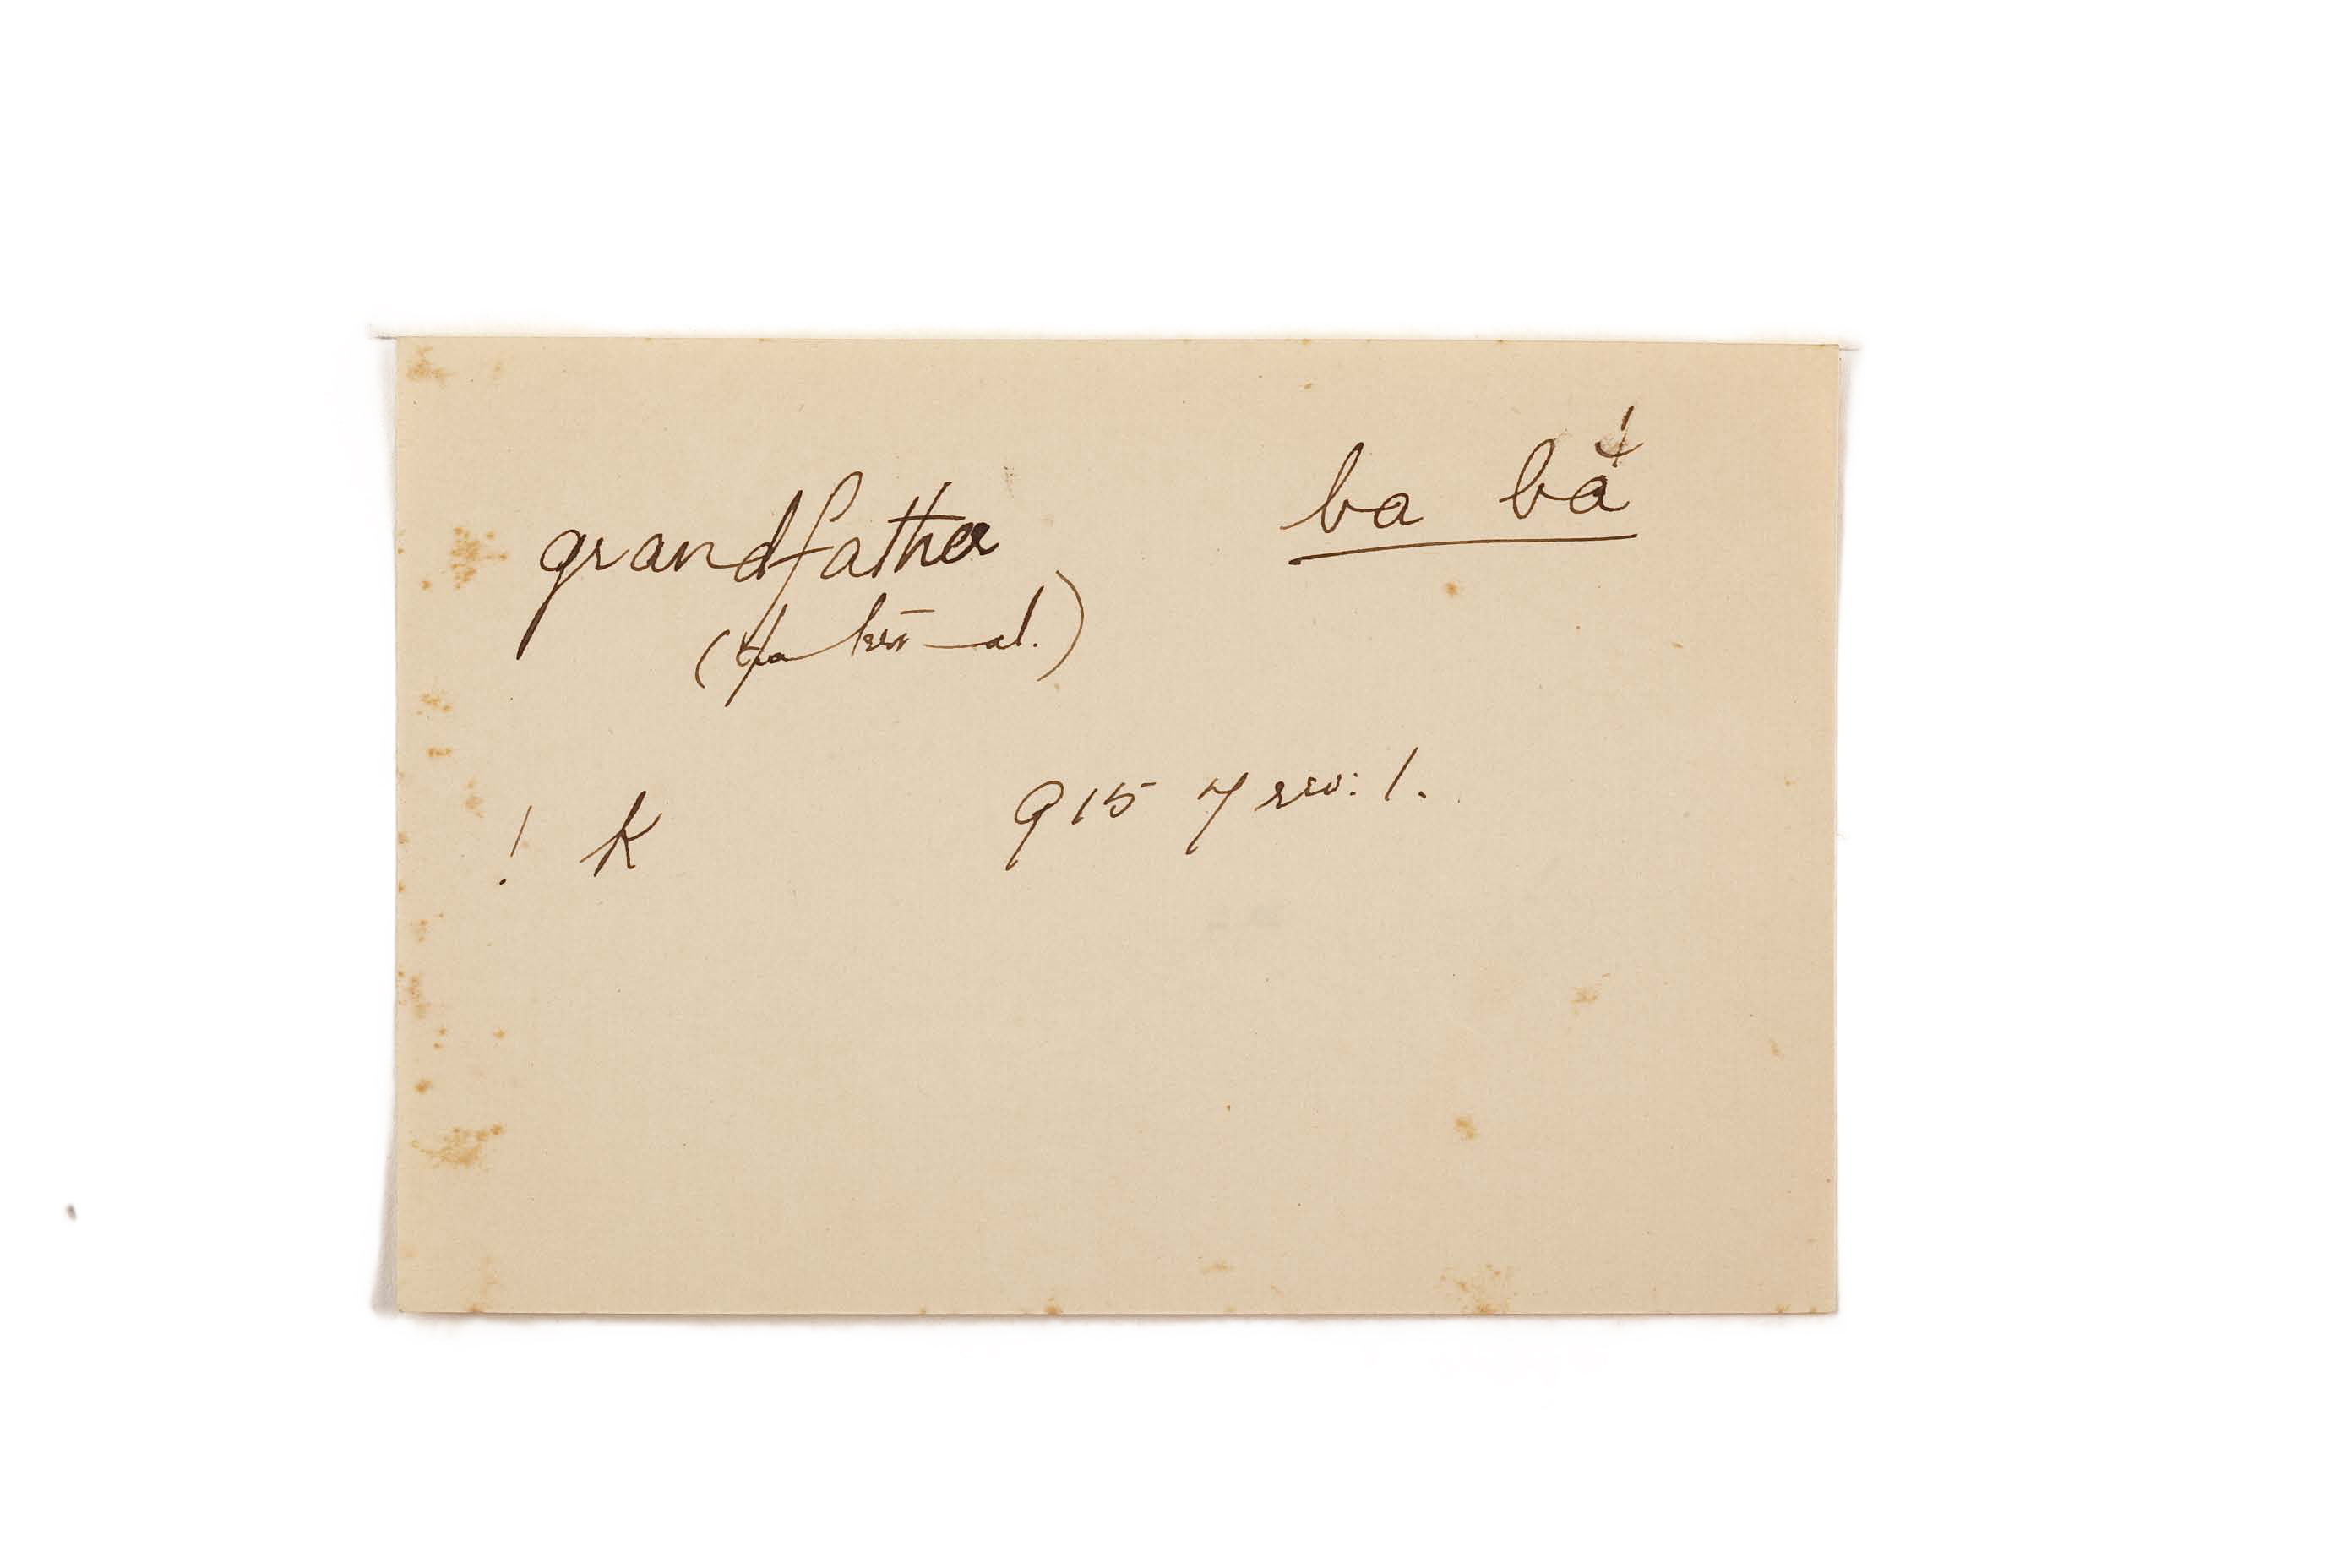 grandfather ba bá
(paternal.)
! K 915 7 rev: 1.